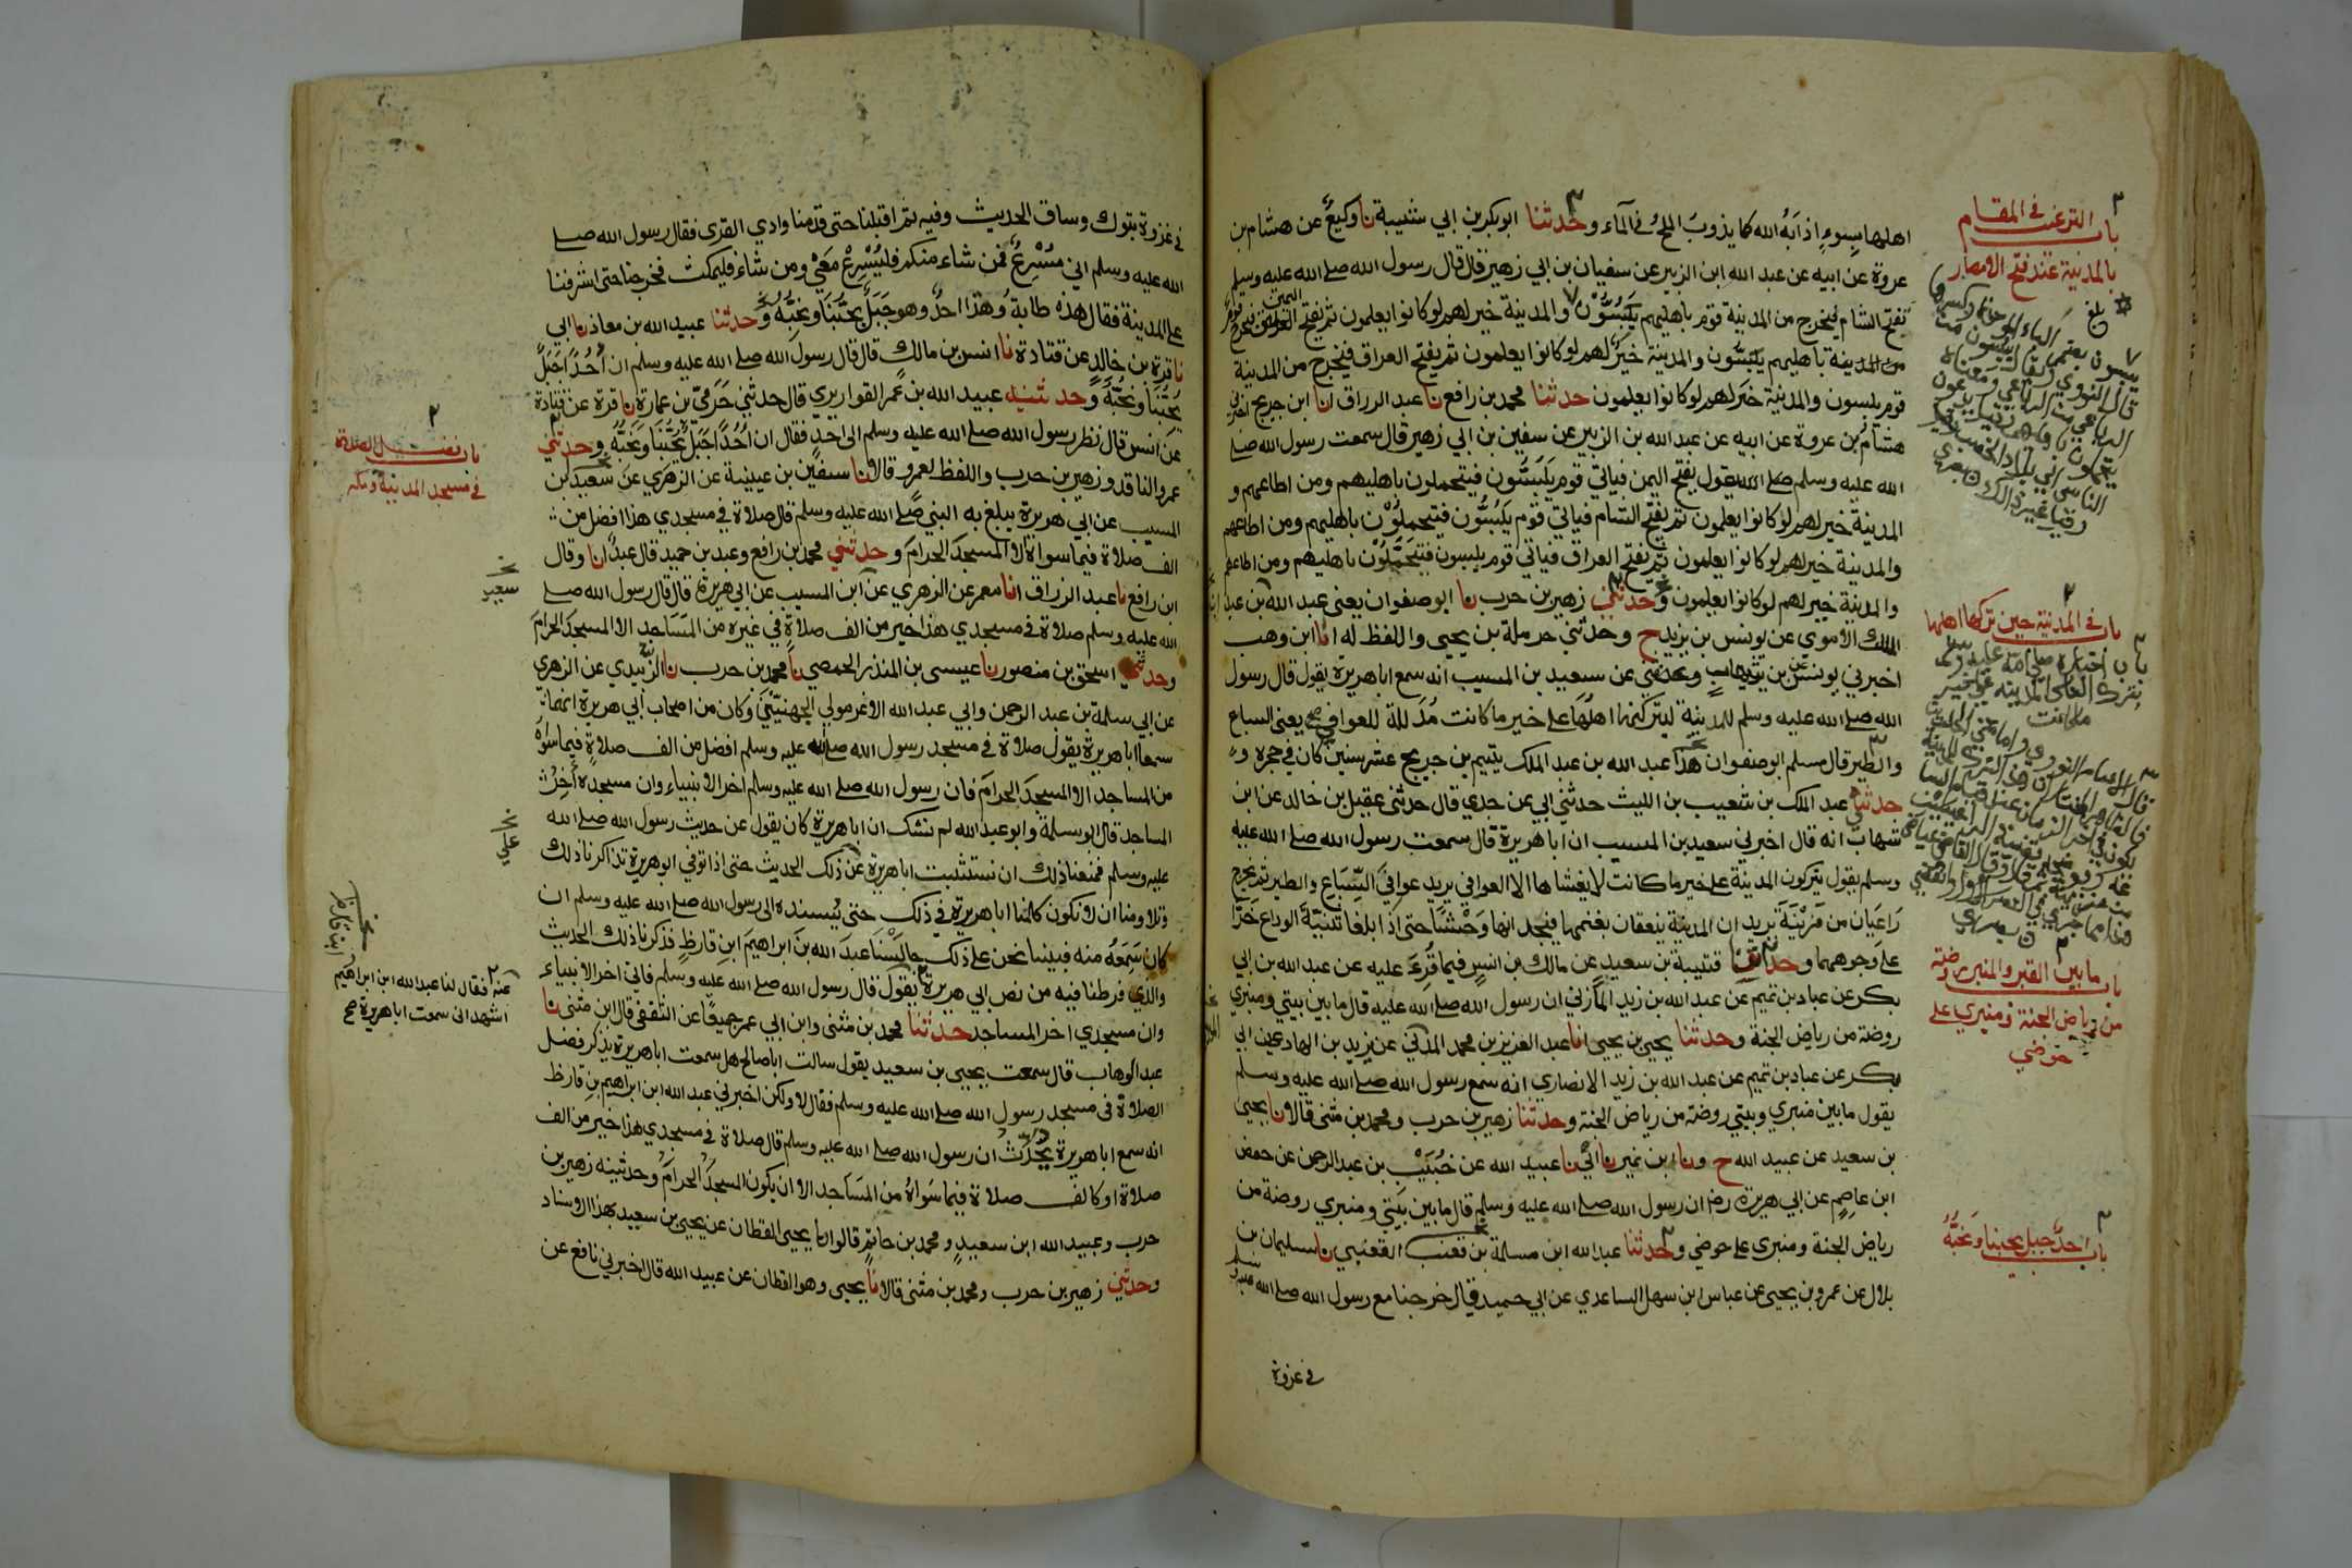 اهلها بسوء اذابه الله كما يذوب الملح في المآء وحدثنا ابو بكر بن ابي شيبة نا وكيع عن هشام بن
عروة عن ابيه عن عبد الله ابن الزبير عن سفيان بن ابي زهير قال قال رسول الله صلى الله عليه وسلم
تفتح الشام فيخرج من المدينة قوم باهليهم يَبُسُّوْن والمدينة خير لهم لو كانوا يعلمون ثم يفتح اليمن فيخرج قوم
من المدينة باهليهم يبسون والمدينة خير لهم لو كانوا يعلمون ثم يفتح العراق فيخرج من المدينة
قوم يبسون والمدينة خير لهم لو كانوا يعلمون حدثنا محمد بن رافع نا عبد الرزاق انا ابن جريج اخبرني
هشام بن عروة عن ابيه عن عبد الله بن الزبير عن سفين بن ابي زهير قال سمعت رسول الله صلى
الله عليه وسلم يقول يفتح اليمن فياتي قوم يبسون فيتحملون باهليهم ومن اطاعهم و
المدينة خير لهم لو كانوا يعلمون ثم يفتح الشام فياتي قوم يبسون فيتحملون باهليهم ومن اطاعهم
والمدينة خير لهم لو كانوا يعلمون ثم يفتح العراق فياتي قوم يبسون فيتحملون باهليهم ومن اطاعهم
والمدينة خير لهم لو كانوا يعلمون وحدثني زهير بن حرب نا ابو صفوان يعني عبد الله بن عبد
الملك الاموي عن يونس بن يزيد ح وحدثني حرملة بن يحيى واللفظ له انا ابن وهب
اخبرني يونس عن ابن شهاب عن سعيد بن المسيب انه سمع ابا هريرة يقول قال رسول
الله صلى الله عليه وسلم للمدينة ليتركنها اهلها على خير ما كانت مذللة للعوافي يعني السباع
والطير قال مسلم ابو صفوان هذا عبد الله بن عبد الملك يتيم بن جريج عشر سنين كان في حجره و
حدثني عبد الملك بن شعيب بن الليث حدثني ابي عن جدي قال حدثني عقيل بن خالد عن ابن
شهاب انه قال اخبرني سعيد بن المسيب ان ابا هريرة قال سمعت رسول الله صلى الله عليه
وسلم يقول يتركون المدينة على خير ما كانت لا يغشاها الا العوافي يريد عوافي السباع والطير ثم يخرج
راعيان من مزينة يريدان المدينة ينعقان بغنمها فيجدانها وحشا حتى اذا بلغا ثنية الوداع خرا
على وجوههما وحدثنا قتيبة بن سعيد عن مالك بن انس فيما قرء عليه عن عبد الله بن ابي
بكر عن عباد بن تميم عن عبد الله بن زيد المازني ان رسول الله صلى الله عليه قال ما بين بيتي ومنبري
روضة من رياض الجنة وحدثنا يحيى بن يحيى انا عبد العزيز بن محمد المدني عن يزيد بن الهاد عن ابي
بكر عن عباد بن تميم عن عبد الله بن زيد الانصاري انه سمع رسول الله صلى الله عليه وسلم
يقول ما بين منبري وبيتي روضة من رياض الجنة وحدثنا زهير بن حرب ومحمد بن مثنى قالا نا يحيى
بن سعيد عن عبيد الله ح ونا ابن نمير نا ابي نا عبيد الله عن خبيب بن عبد الرحمن عن حفص
ابن عاصم عن ابي هريرة رضـ ان رسول الله صلى الله عليه وسلم قال ما بين بيتي ومنبري روضة من
رياض الجنة ومنبري على حوضي وحدثنا عبد الله ابن مسلمة بن قعنب القعنبي نا سليمان بن
بلال عن عمرو بن يحيى عن عباس ابن سهل الساعدي عن ابي حميد قال خرجنا مع رسول الله صلى الله عليه وسلم
في غزوة
باب الترغيب في المقام
بالمدينة عند فتح الامصار
باب في المدينة حين تركها اهلها
باب ما بين القبر والمنبر روضة
من رياض الجنة ومنبري على
حوضي
باب احد جبل يحبنا ونحبه
في غزوة تبوك وساق الحديث وفيه ثم اقبلنا حتى قدمنا وادي القرى فقال رسول الله صلى
الله عليه وسلم اني مسرع فمن شاء منكم فليسرع معي ومن شاء فليمكث فخرجنا حتى اشرفنا
على المدينة فقال هذه طابة وهذا احد وهو جبل يحبنا ونحبه وحدثنا عبيد الله بن معاذ نا ابي
نا قرة بن خالد عن قتادة نا انس بن مالك قال قال رسول الله صلى الله عليه وسلم ان احدا جبل
يحبنا ونحبه وحدثنيه عبيد الله بن عمر القواريري قال حدثني حرمي بن عمارة نا قرة عن قتادة
عن انس قال نظر رسول الله صلى الله عليه وسلم الى احد فقال ان احدا جبل يحبنا ونحبه وحدثني
عمرو الناقد وزهير بن حرب واللفظ لعمرو قالا نا سفين بن عيينة عن الزهري عن سعيد بن
المسيب عن ابي هريرة يبلغ به النبي صلى الله عليه وسلم قال صلاة في مسجدي هذا افضل من
الف صلاة فيما سواه الا المسجد الحرام وحدثني محمد بن رافع وعبد بن حميد قال عبد انا وقال
ابن رافع نا عبد الرزاق انا معمر عن الزهري عن ابن المسيب عن ابي هريرة قال قال رسول الله صلى
الله عليه وسلم صلاة في مسجدي هذا خير من الف صلاة في غيره من المساجد الا المسجد الحرام
وحدثني اسحق بن منصور نا عيسى بن المنذر الحمصي نا محمد بن حرب نا الزبيدي عن الزهري
عن ابي سلمة بن عبد الرحمن وابي عبد الله الاغر مولي الجهنيين وكان من اصحاب ابي هريرة انهما
سمعا ابا هريرة يقول صلاة في مسجد رسول الله صلى الله عليه وسلم افضل من الف صلاة فيما سواه
من المساجد الا المسجد الحرام فان رسول الله صلى الله عليه وسلم اخر الانبياء وان مسجده اخر
المساجد قال ابو سلمة وابو عبد الله لم نشك ان ابا هريرة كان يقول عن حديث رسول الله صلى الله
عليه وسلم فمنعنا ذلك ان نستثبت ابا هريرة عن ذلك الحديث حتى اذا توفي ابو هريرة تذاكرنا ذلك
وتلاومنا ان لا نكون كلمنا ابا هريرة في ذلك حتى يسنده الى رسول الله صلى الله عليه وسلم ان
كان سمعه منه فبينا نحن على ذلك جالسنا عبد الله بن ابراهيم ابن قارظ فذكرنا ذلك الحديث
والذي فرطنا فيه من نص ابي هريرة يقول قال رسول الله صلى الله عليه وسلم فاني اخر الانبياء
وان مسجدي اخر المساجد حدثنا محمد بن مثنى وابن ابي عمر جميعا عن الثقفي قال ابن مثنى نا
عبد الوهاب قال سمعت يحيى بن سعيد يقول سالت ابا صالح هل سمعت ابا هريرة يذكر فضل
الصلاة في مسجد رسول الله صلى الله عليه وسلم فقال لا ولكن اخبرني عبد الله ابن ابراهيم بن قارظ
انه سمع ابا هريرة يحدث ان رسول الله صلى الله عليه وسلم قال صلاة في مسجدي هذا خير من الف
صلاة او كالف صلاة فيما سواه من المساجد الا ان يكون المسجد الحرام وحدثنيه زهير بن
حرب وعبيد الله ابن سعيد ومحمد بن حاتم قالوا نا يحيى القطان عن يحيى بن سعيد بهذا الاسناد
وحدثني زهير بن حرب ومحمد بن مثنى قالا نا يحيى وهو القطان عن عبيد الله قال اخبرني نافع عن
باب فضل الصلاة
في مسجد المدينة ومكة
عنه فقال لنا عبد الله ابن ابراهيم
اشهد اني سمعت ابا هريرة صح